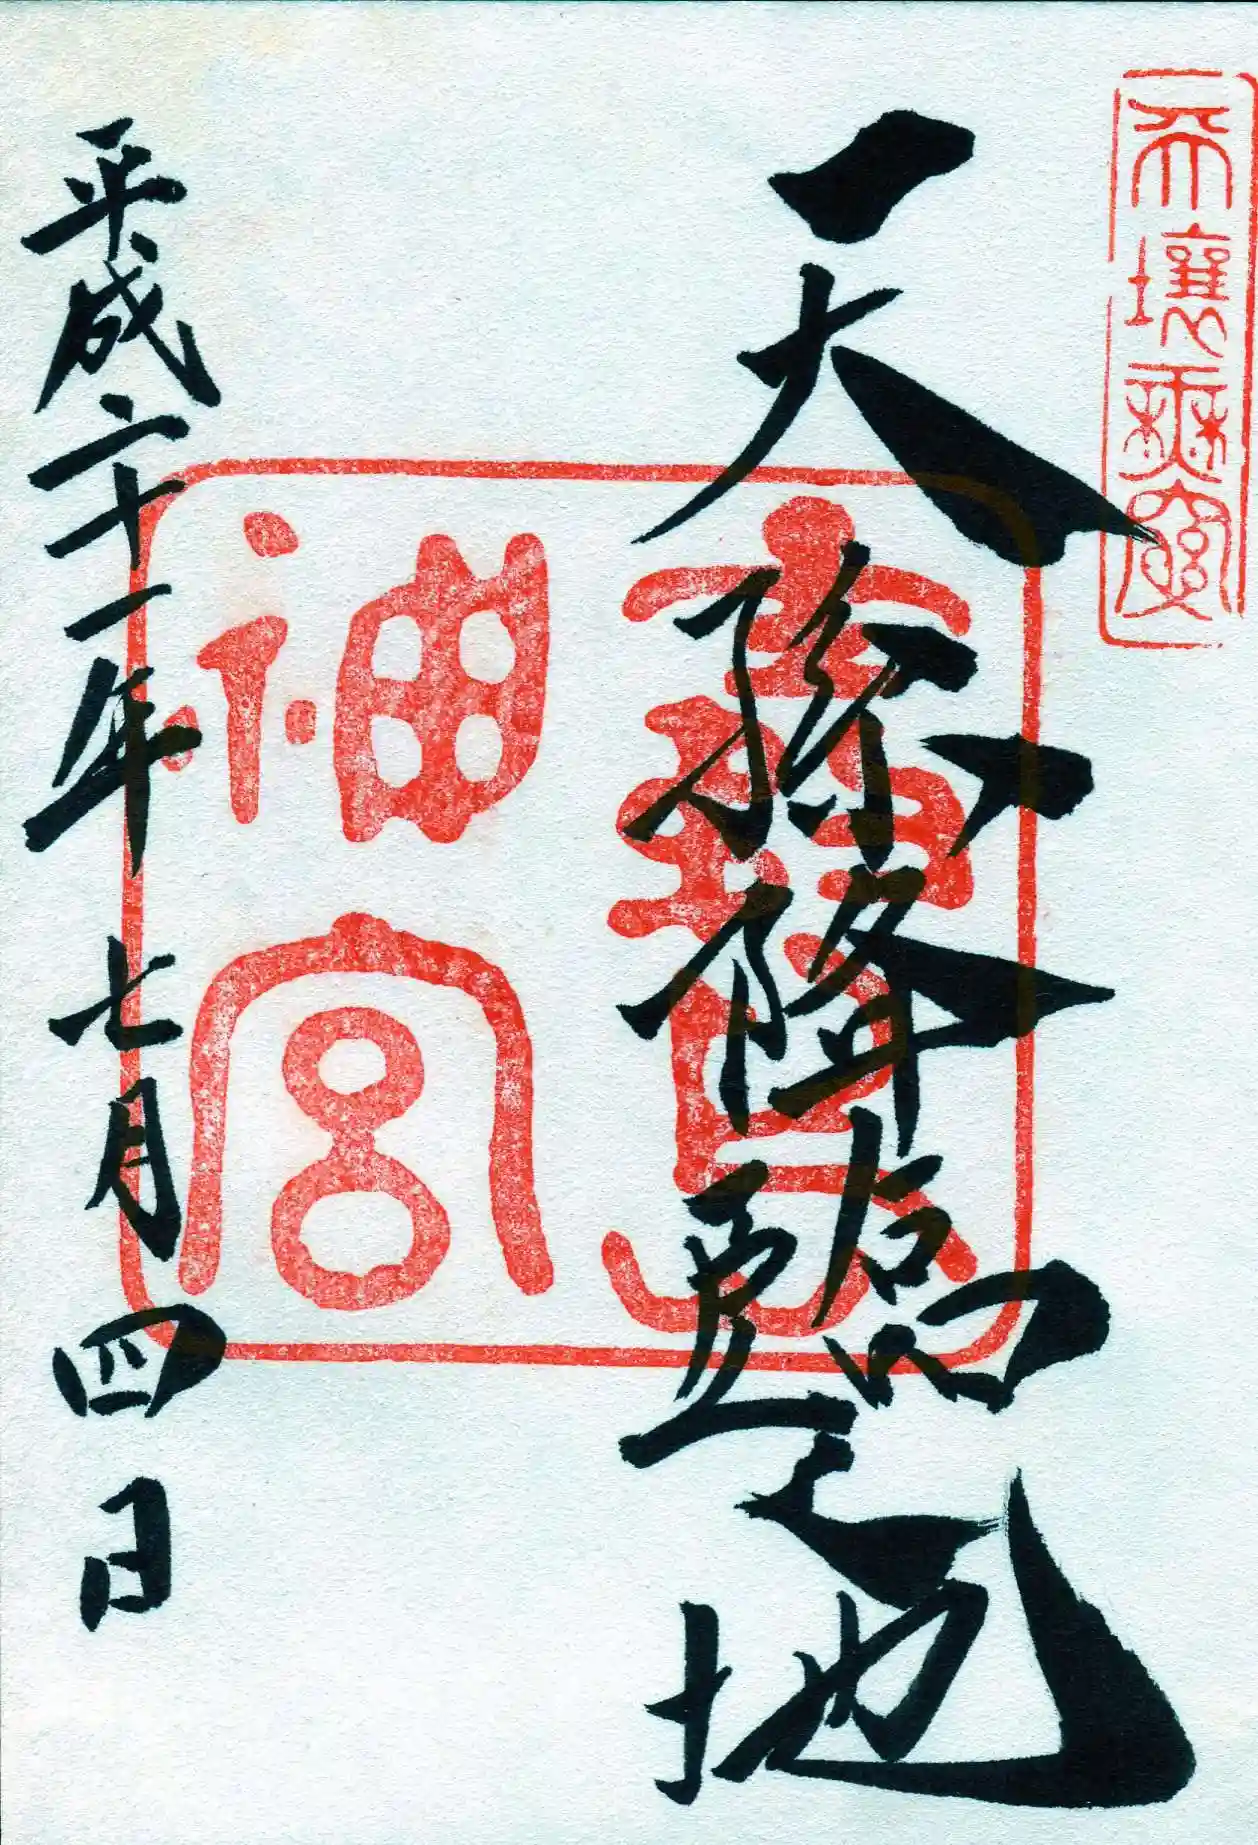 天壤無窮
天孫降臨之地
霧島
神宮
平成二十一年七月四日